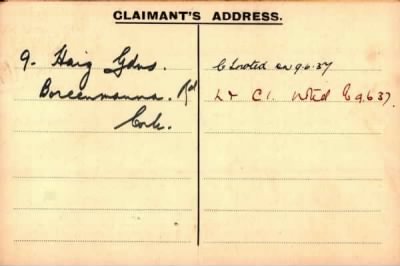 CLAIMANT'S ADDRESS.
9. Haig Gdns.
Boreenmanna. Rd
Cork.
noted on 9.6.37
Lr C1. noted 9.6.37.